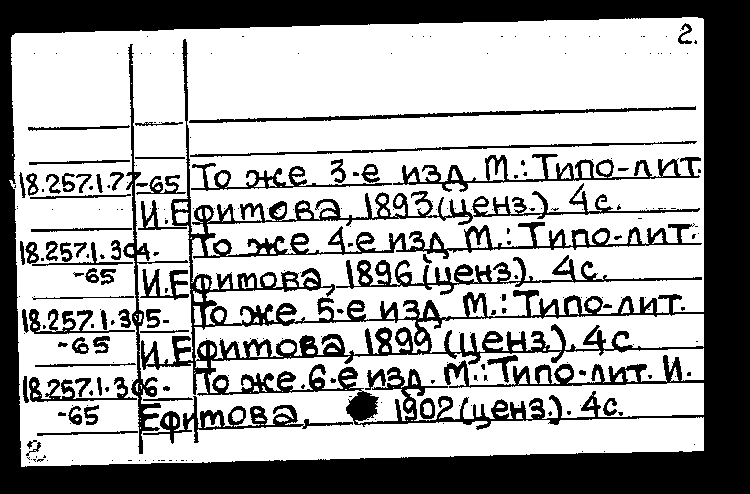 2.
18.257.1.77-65 То же. 3-е изд. М.: Типо-лит.
И.Ефитова, 1893(ценз.). 4с.
18.257.1.304- То же. 4-е изд. М.: Типо-лит.
-65 И.Ефитова, 1896(ценз.). 4с.
18.257.1.305- То же. 5-е изд. М.: Типо-лит.
-65 И.Ефитова, 1899(ценз.). 4с.
18.257.1.306- То же. 6-е изд. М.: Типо-лит. И.
-65 Ефитова, 1902(ценз.). 4с.
2